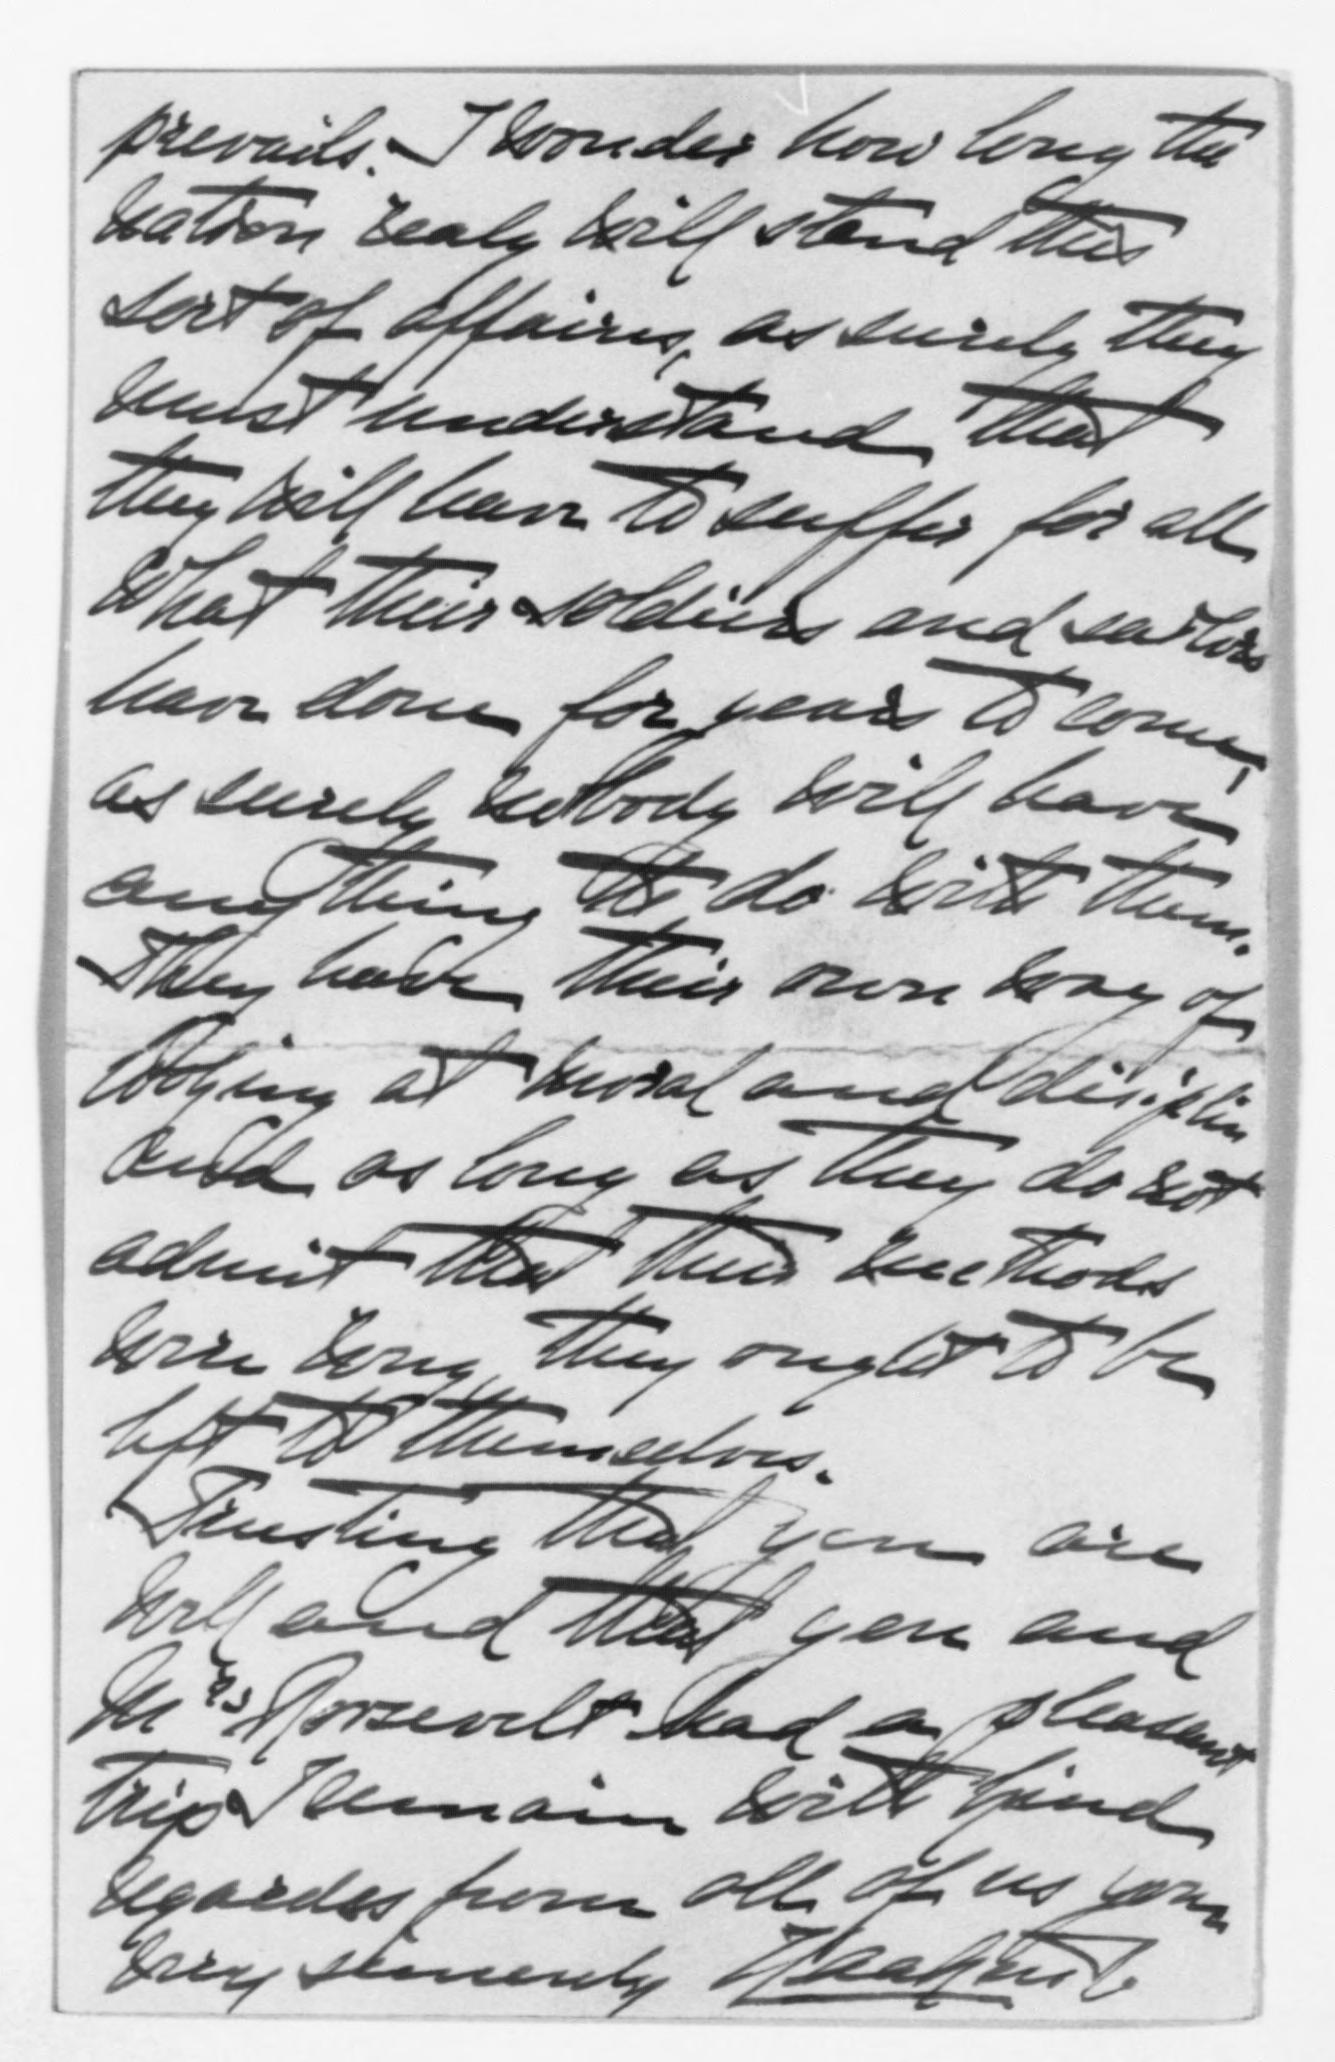 prevails. I wonder how long the
nation realy will stand this
sort of affairs, as surely they
must understand that
they will have to suffer for all
what their soldiers and sailors
have done for years to come,
as surely nobody will have
anything to do with them.
They have their own way of
looking at moral and disiplin
and as long as they do not
admit that their methods
were wrong they ought to be
left to themselves.
Trusting that you are
well and that you and
Mrs Roosevelt had a pleasant
trip I remain with kind
regardes from all of us your
very sincerely Haakon